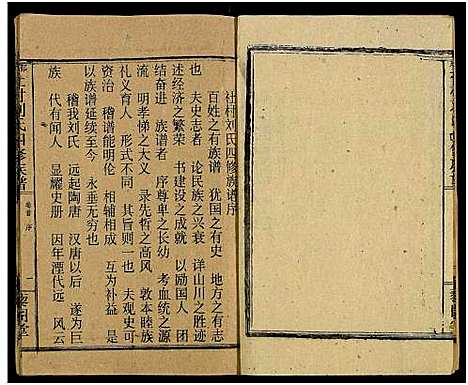 社村刘氏四修族谱序
百姓之有族谱 犹国之有史 地方之有志
也 夫史志者 论民族之兴衰 详山川之胜迹
述经济之繁荣 书建设之成就 以励国人 团
结奋进 族谱者 序尊卑之伦常 考血统之源
流 明孝悌之大义 录先哲之高风 敦本睦族
礼义育人 形式不同 异曲同工 夫观史可
资治 稽谱能明伦 相辅相成 互为补益 是
以族谱延续至今 永垂无穷也
稽我刘氏 远起陶唐 汉唐以后 遂为巨
族 代有闻人 显耀史册 因年湮代远 风云
村刘氏四修族谱
卷首 序
一